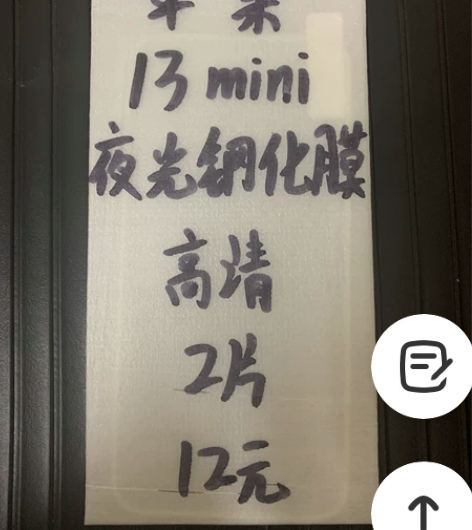 苹果
13 mini
夜光钢化膜
高清
2片
12元